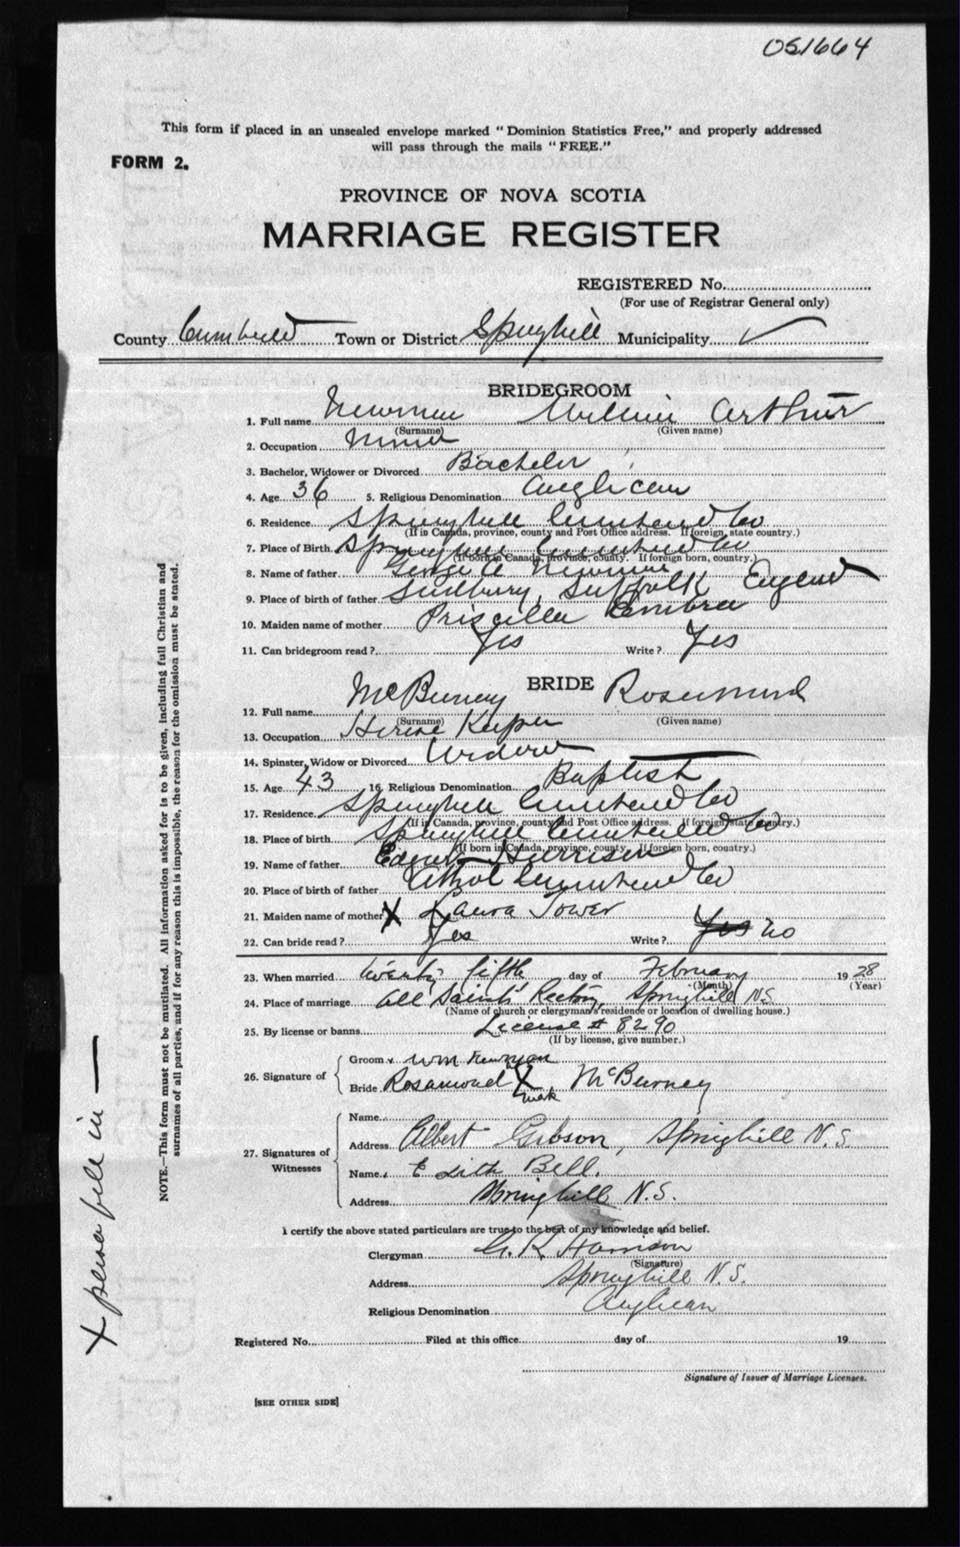 051664
This form if placed in an unsealed envelope marked "Dominion Statistics Free," and properly addressed
will pass through the mails "FREE."
FORM 2.
PROVINCE OF NOVA SCOTIA
MARRIAGE REGISTER
REGISTERED No.
(For use of Registrar General only)
County Cumberland Town or District Springhill Municipality
BRIDEGROOM
1. Full name Newman William Arthur
(Surname) (Given name)
2. Occupation Miner
3. Bachelor, Widower or Divorced Bachelor
4. Age 36 5. Religious Denomination Anglican
6. Residence Springhill Cumberland Co
(If in Canada, province, county and Post Office address. If foreign, state country.)
7. Place of Birth Springhill Cumberland Co
(If born in Canada, province, county. If foreign born, country.)
8. Name of father George A Newman
9. Place of birth of father Sudbury, Suffolk England
10. Maiden name of mother Priscilla Embree
11. Can bridegroom read? Yes Write? Yes
BRIDE
12. Full name McBurney Rosamund
(Surname) (Given name)
13. Occupation House Keeper
14. Spinster, Widow or Divorced Widow
15. Age 43 16. Religious Denomination Baptist
17. Residence Springhill Cumberland Co
(If in Canada, province, county and Post Office address. If foreign, state country.)
18. Place of birth Springhill Cumberland Co
(If born in Canada, province, county. If foreign born, country.)
19. Name of father Harrison
20. Place of birth of father Athol Cumberland Co
21. Maiden name of mother X Laura Tower
22. Can bride read? Yes Write? Yes no
23. When married twenty fifth day of February 1928
(Month) (Year)
24. Place of marriage All Saints' Rectory, Springhill N.S.
(Name of church or clergyman's residence or location of dwelling house.)
25. By license or banns License # 8290
(If by license, give number.)
26. Signature of
Groom Wm Newman
Bride Rosamond X McBurney
mark
27. Signatures of Witnesses
Name
Address Albert Gibson, Springhill N.S.
Name Edith Bell.
Address Springhill N.S.
I certify the above stated particulars are true to the best of my knowledge and belief.
Clergyman G. K. Harrison
(Signature)
Address Springhill N.S.
Religious Denomination Anglican
Registered No. Filed at this office day of 19
Signature of Issuer of Marriage Licenses.
[SEE OTHER SIDE]
NOTE.—This form must not be mutilated. All information asked for is to be given, including full Christian and
surnames of all parties, and if for any reason this is impossible, the reason for the omission must be stated.
X please fill in —